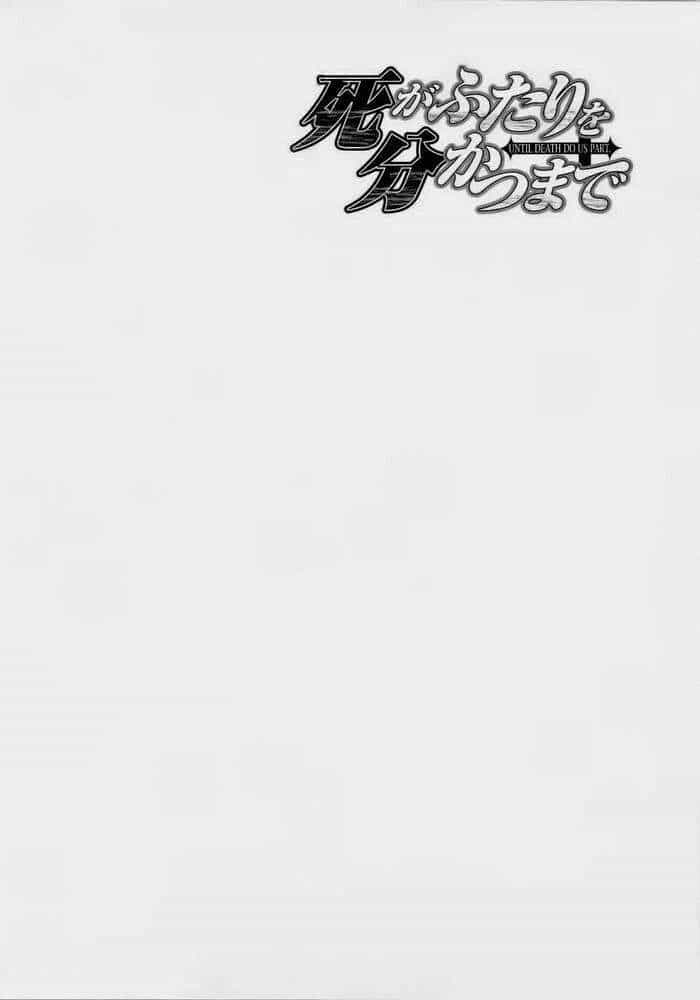 死がふたりを
UNTIL DEATH DO US PART
分かつまで